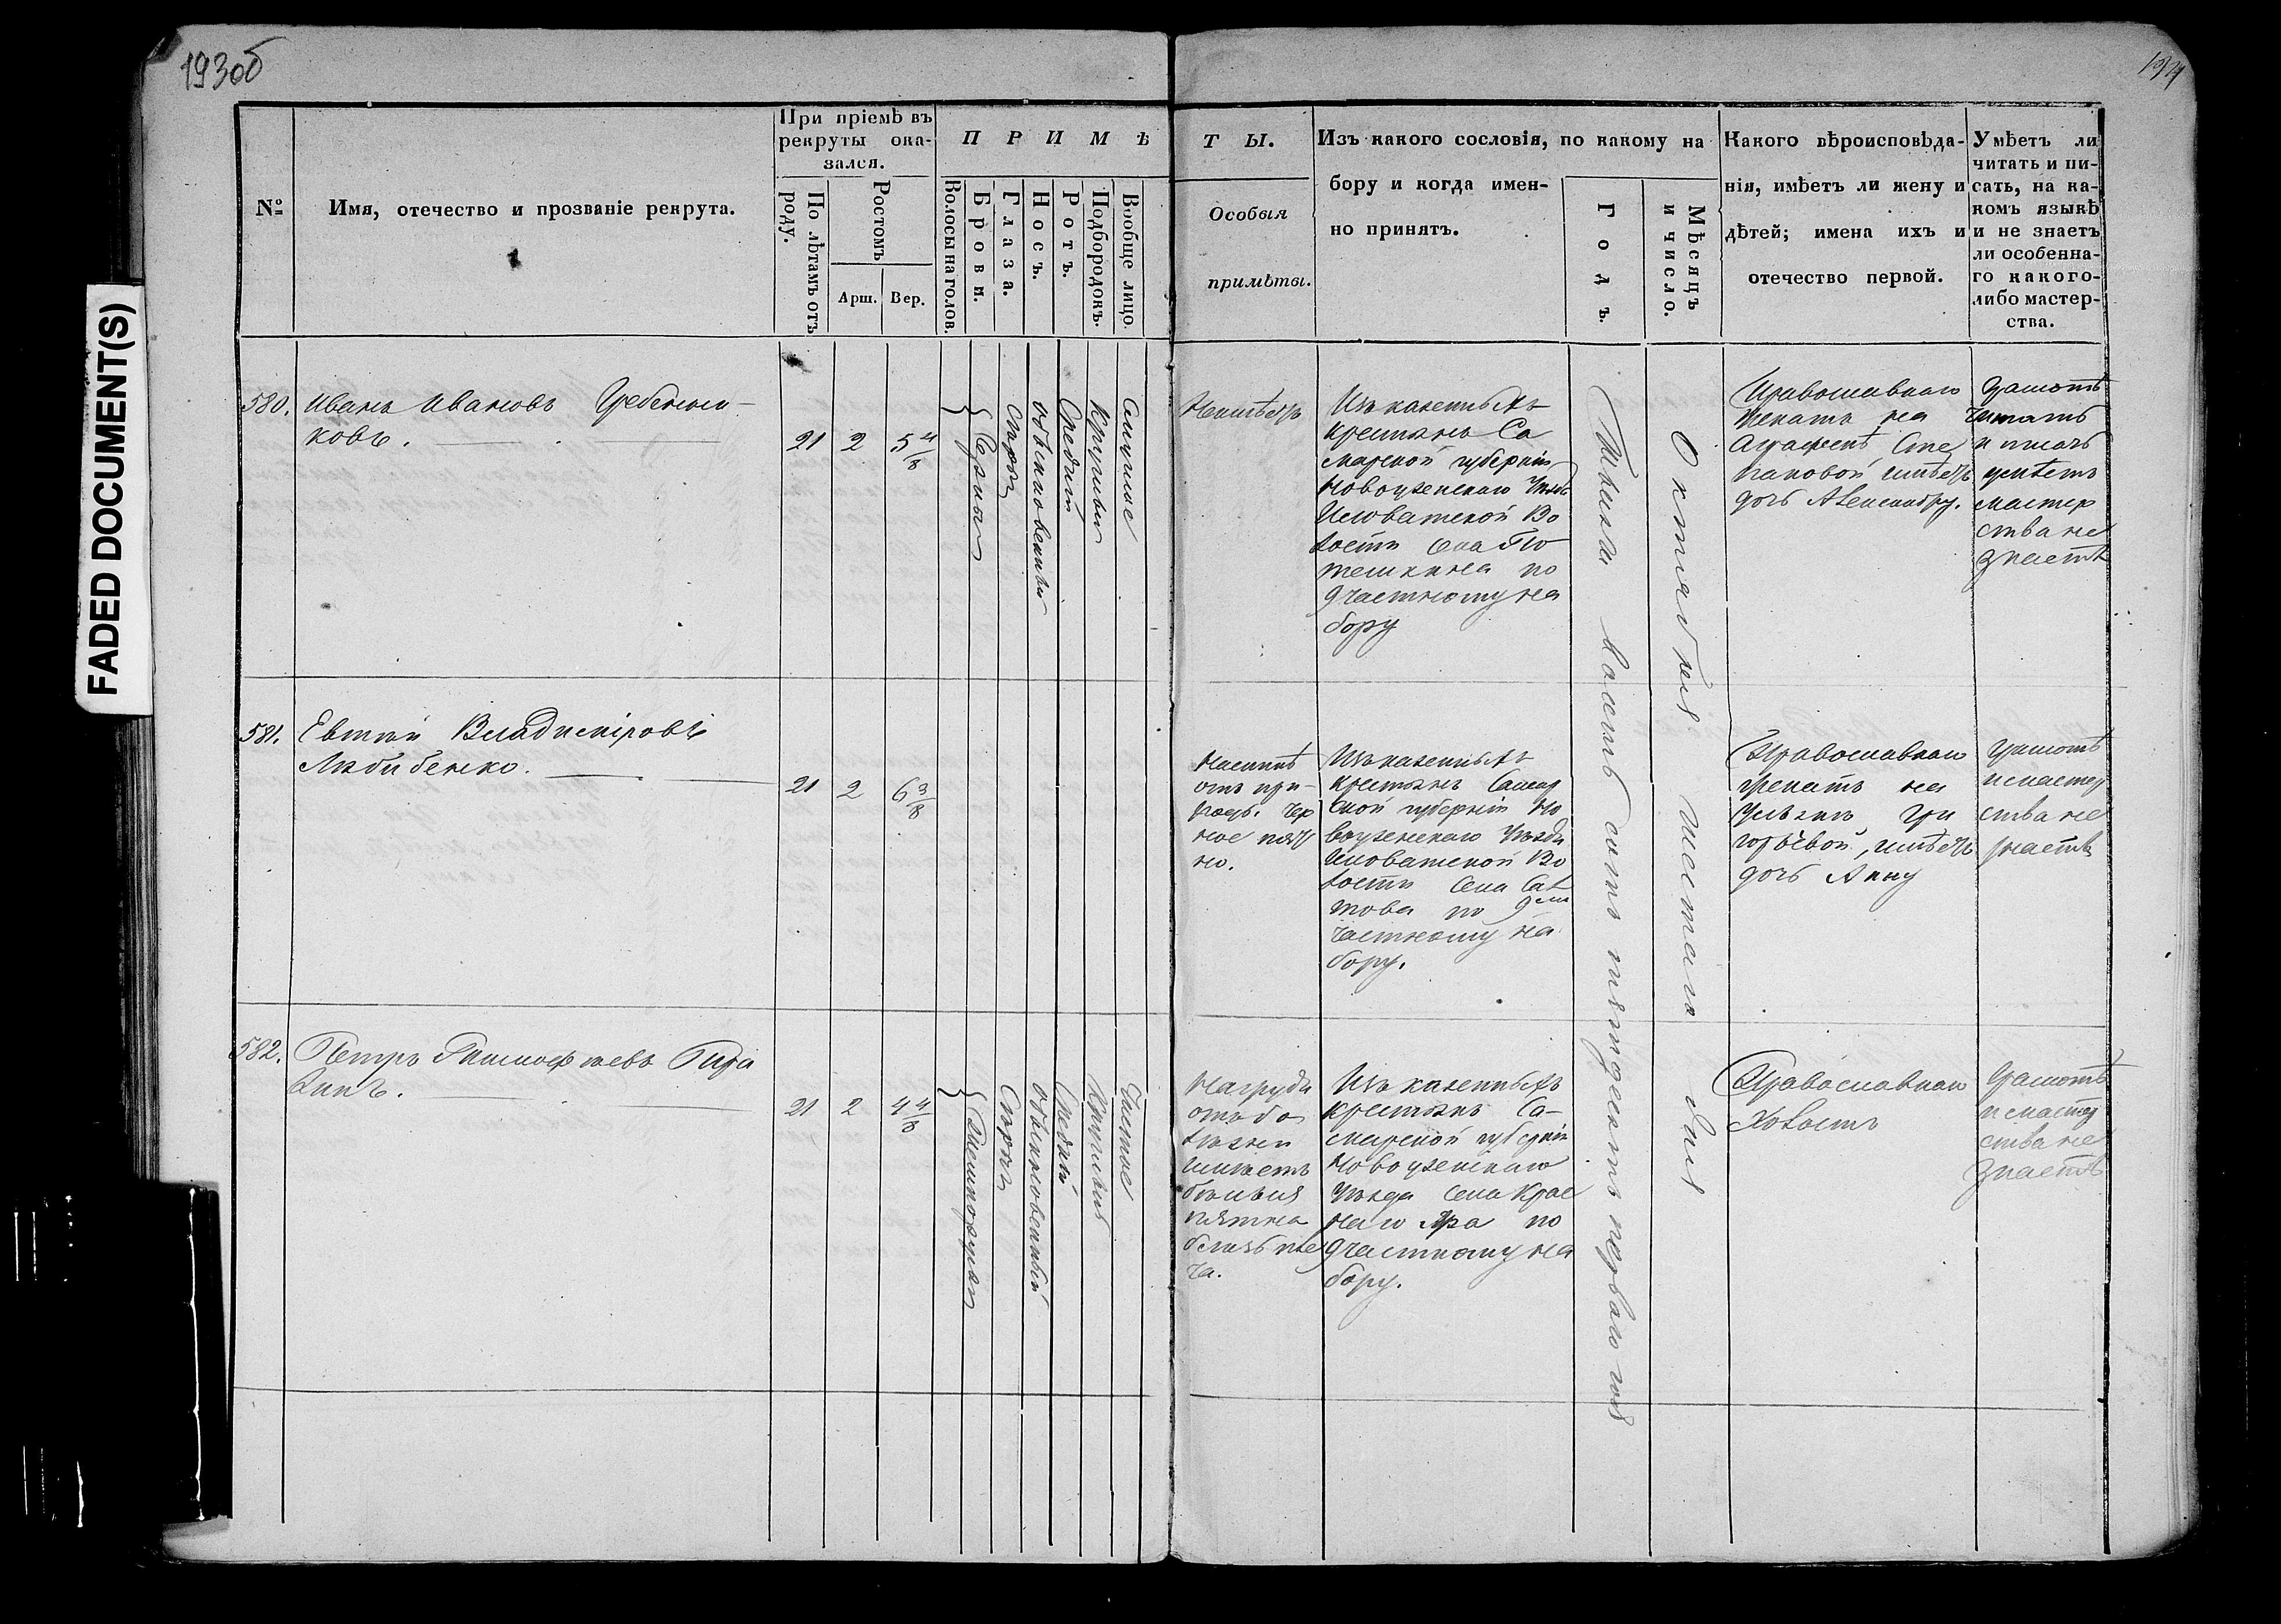 193об
194
FADED DOCUMENT(S)
№
Имя, отечество и прозваніе рекрута.
При пріемѣ въ
рекруты ока-
зался.
По лѣтамъ отъ
роду.
Ростомъ
Арш.
Вер.
П Р И М Ѣ
Волосы на голов.
Брови.
Глаза.
Носъ.
Ротъ.
Подбородокъ.
Вообще лицо.
Т Ы.
Особыя
примѣты.
Изъ какого сословія, по какому на
бору и когда имен-
но принятъ.
Годъ.
Мѣсяцъ
и число.
Какого вѣроисповѣда-
нія, имѣетъ ли жену и
дѣтей; имена ихъ и
отечество первой.
Умѣетъ ли
читать и пи-
сать, на ка-
комъ языкѣ
и не знаетъ
ли особенна-
го какого-
либо мастер-
ства.
580.
Иванъ Ивановъ Гребеньщи-
ковъ.
21
2
5 4/8
Черныя
Сѣрыя
Обыкновенный
Средній
Круглый
Смуглое
Неимѣетъ
Изъ казенныхъ
крестьянъ Са
марской губерніи
Новоузенскаго Уѣзда
Иловатской Во
лости села По
темкина по
9 частному на
бору
Тысяча восемь сотъ пятьдесятъ перваго года
Октября шестаго дня
Православнаго
женатъ на
Агафьѣ Сте
пановой имѣетъ
дочь Александру.
Грамотѣ
читать
и писать
умѣетъ
мастер
ства не
знаетъ
581.
Владиміровъ
21
2
6 3/8
На спинѣ
отъ при-
роды чер
ное пят
но.
Изъ казенныхъ
крестьянъ Самар
ской губерніи Но
воузенскаго Уѣзда
Иловатской Во
лости села Сал
това по 9му
частному на
бору.
Православнаго
женатъ на
Ульянѣ Гри
горьевой, имѣетъ
дочь Анну
Грамотѣ
и мастер
ства не
знаетъ
582.
Петръ Тимофѣевъ
21
2
4 4/8
Темнорусыя
Сѣрыя
Обыкновенный
Средній
Круглый
Чистое
На груди
отъ бо
лѣзни
имѣетъ
бѣлыя
пятна
близь пле
ча.
Изъ казенныхъ
крестьянъ Са-
марской губерніи
Новоузенскаго
Уѣзда села Крас
наго Яра по
9 частному на
бору.
Православнаго
Холостъ
Грамотѣ
и мастер
ства не
знаетъ